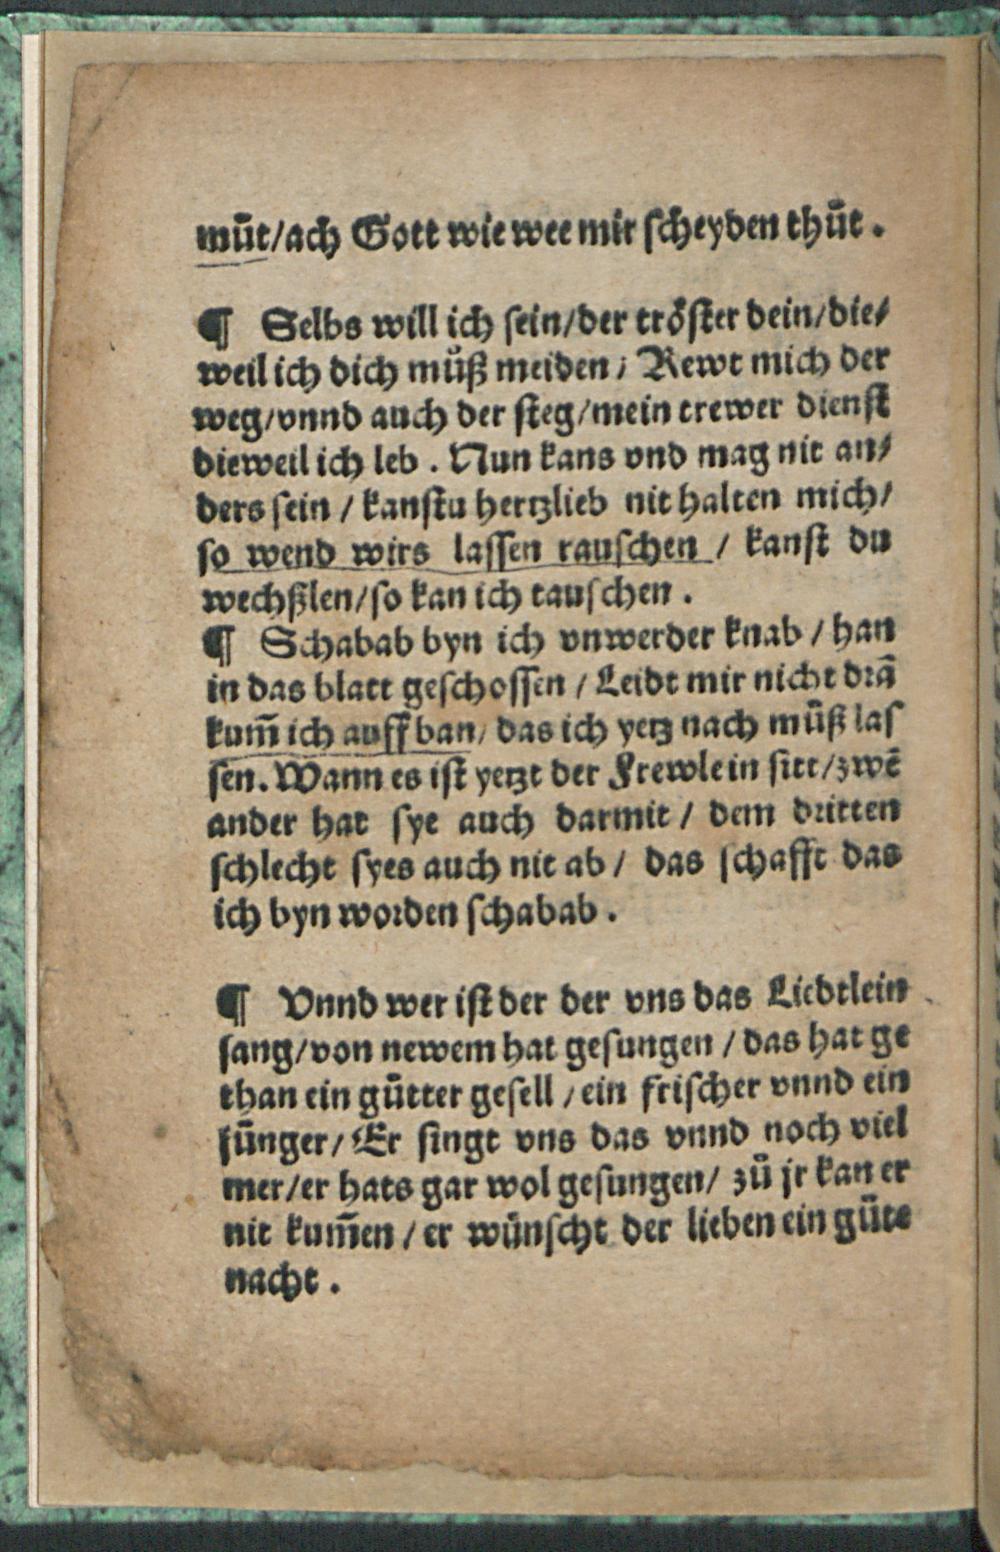 muͤt/ach Gott wie wee mir scheyden thuͤt.
¶ Selbs will ich sein/der troͤster dein/die/
weil ich dich muͤß meiden / Rewt mich der
weg/vnnd auch der steg/mein trewer dienst
dieweil ich leb. Nun kans vnd mag nit an/
ders sein / kanstu hertzlieb nit halten mich/
so wend wirs lassen rauschen / kanst du
wechßlen/so kan ich tauschen.
¶ Schabab byn ich vnwerder knab / han
in das blatt geschossen / Leidt mir nicht drā
kum̄ ich auff ban/ das ich yetz nach muͤß las
sen. Wann es ist yetzt der Frewlein sitt/zwē
ander hat sye auch darmit / dem dritten
schlecht syes auch nit ab / das schafft das
ich byn worden schabab.
¶ Vnnd wer ist der der vns das Liedtlein
sang/von newem hat gesungen / das hat ge
than ein guͤtter gesell / ein frischer vnnd ein
juͤnger/ Er singt vns das vnnd noch viel
mer/er hats gar wol gesungen/ zuͤ jr kan er
nit kum̄en / er wuͤnscht der lieben ein guͤte
nacht.